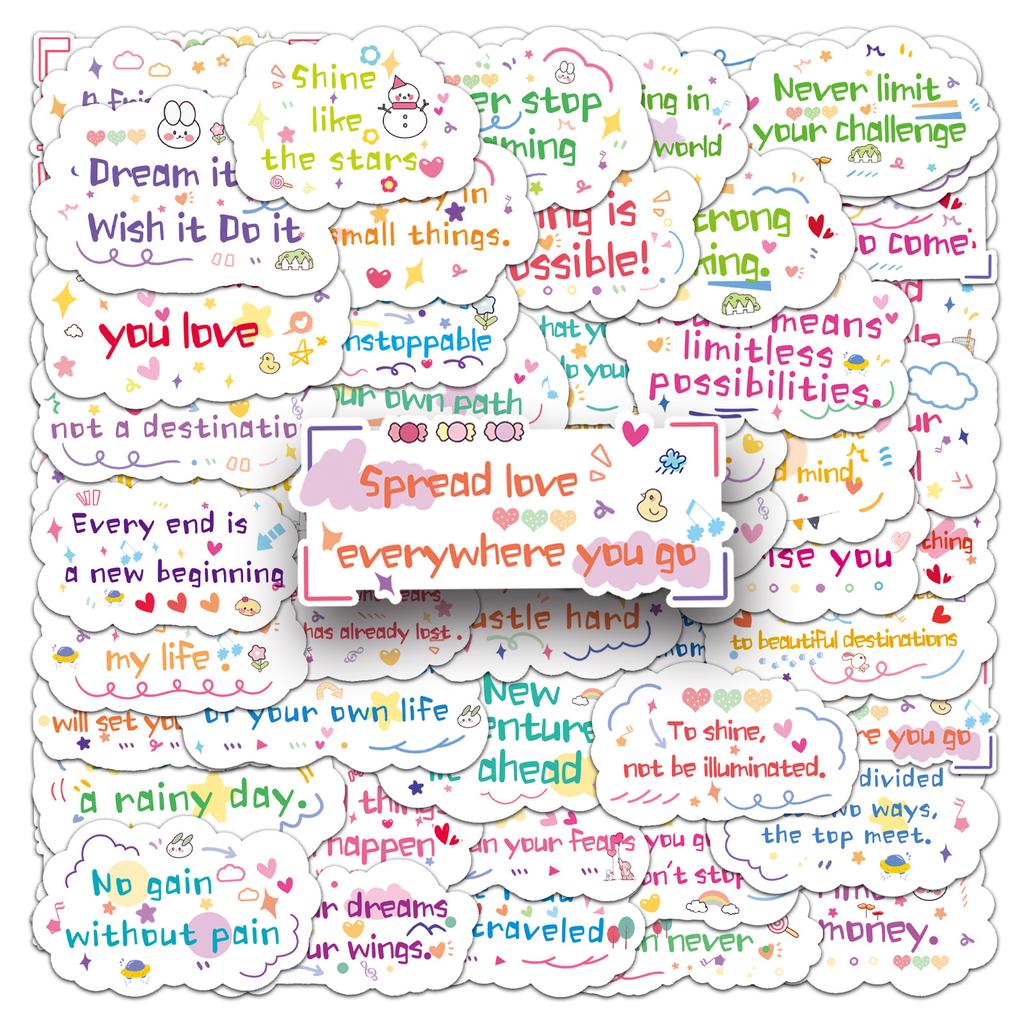 Shine
like
the stars
er stop
aming
ing in
world
Never limit
your challenge
Dream it
Wish it Do it
y in
small things.
ing is
ossible!
trong
king.
o come.
you love
nstoppable
hat yo
o your
means
limitless
possibilities.
not a destinatio
our own path
Spread love
everywhere you go
mind.
ur
Every end is
a new beginning
ise you
thing
my life.
has already lost.
ustle hard
to beautiful destinations
will set you
of your own life
New
enture
ahead
To shine,
not be illuminated.
re you go
a rainy day.
thing
happen
divided
wo ways,
the top meet.
No gain
without pain
an your fears
you g
on't stop
ur dreams
ur wings.
traveled
n never
money.